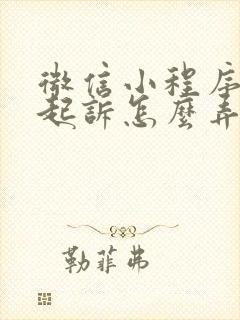 微信小程序
起訴怎麼弄
勒菲弗